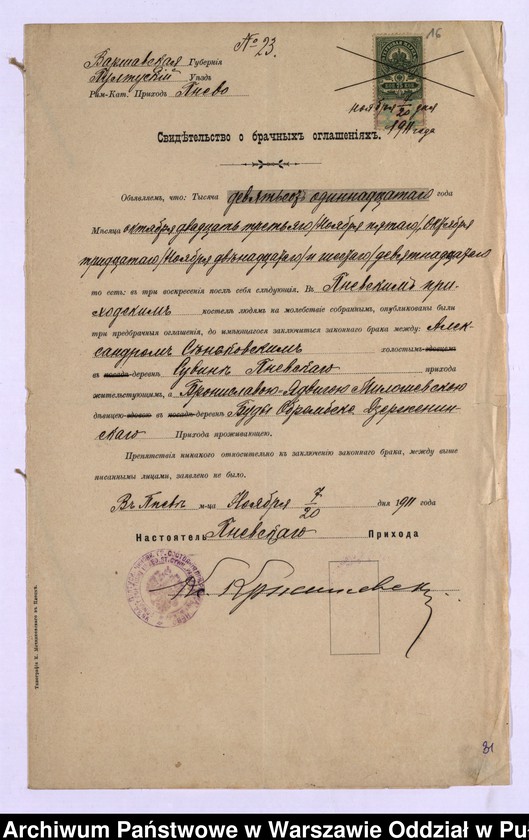 № 23.
16
Варшавская Губернія
Пултускій Уѣздъ
Рим-Кат. Приходъ Пнево
ноября 7/20 дня
1911 года
Свидѣтельство о брачныхъ оглашеніяхъ.
Объявляемъ, что: Тысяча девятьсотъ одиннадцатаго года
Мѣсяца октября двадцать третьяго /Ноября пятаго/, Октября
тридцатаго /Ноября двѣнадцатаго/ и шестаго /девятнадцатаго
то есть: въ три воскресенія послѣ себя слѣдующія, Въ Пневскимъ при-
ходскимъ костелѣ людямъ на молебствіе собраннымъ, опубликованы были
три предбрачныя оглашенія, до имеющагося заключиться законнаго брака между: Алек-
сандромъ холостымъ вдовцемъ
въ посадѣ деревнѣ Пневскаго прихода
жительствующимъ, а Брониславою-Ядвигою Милошевскою
дѣвицею вдовою въ посадѣ деревнѣ
скаго Прихода проживающею.
Препятствія никакого относительно къ заключенію законнаго брака, между выше
писанными лицами, заявлено не было.
Въ Пневѣ м-ца Ноября 7/20 дня 1911 года
Настоятель Пневскаго Прихода
Кс.
31
Archiwum Państwowe w Warszawie Oddział w Pu